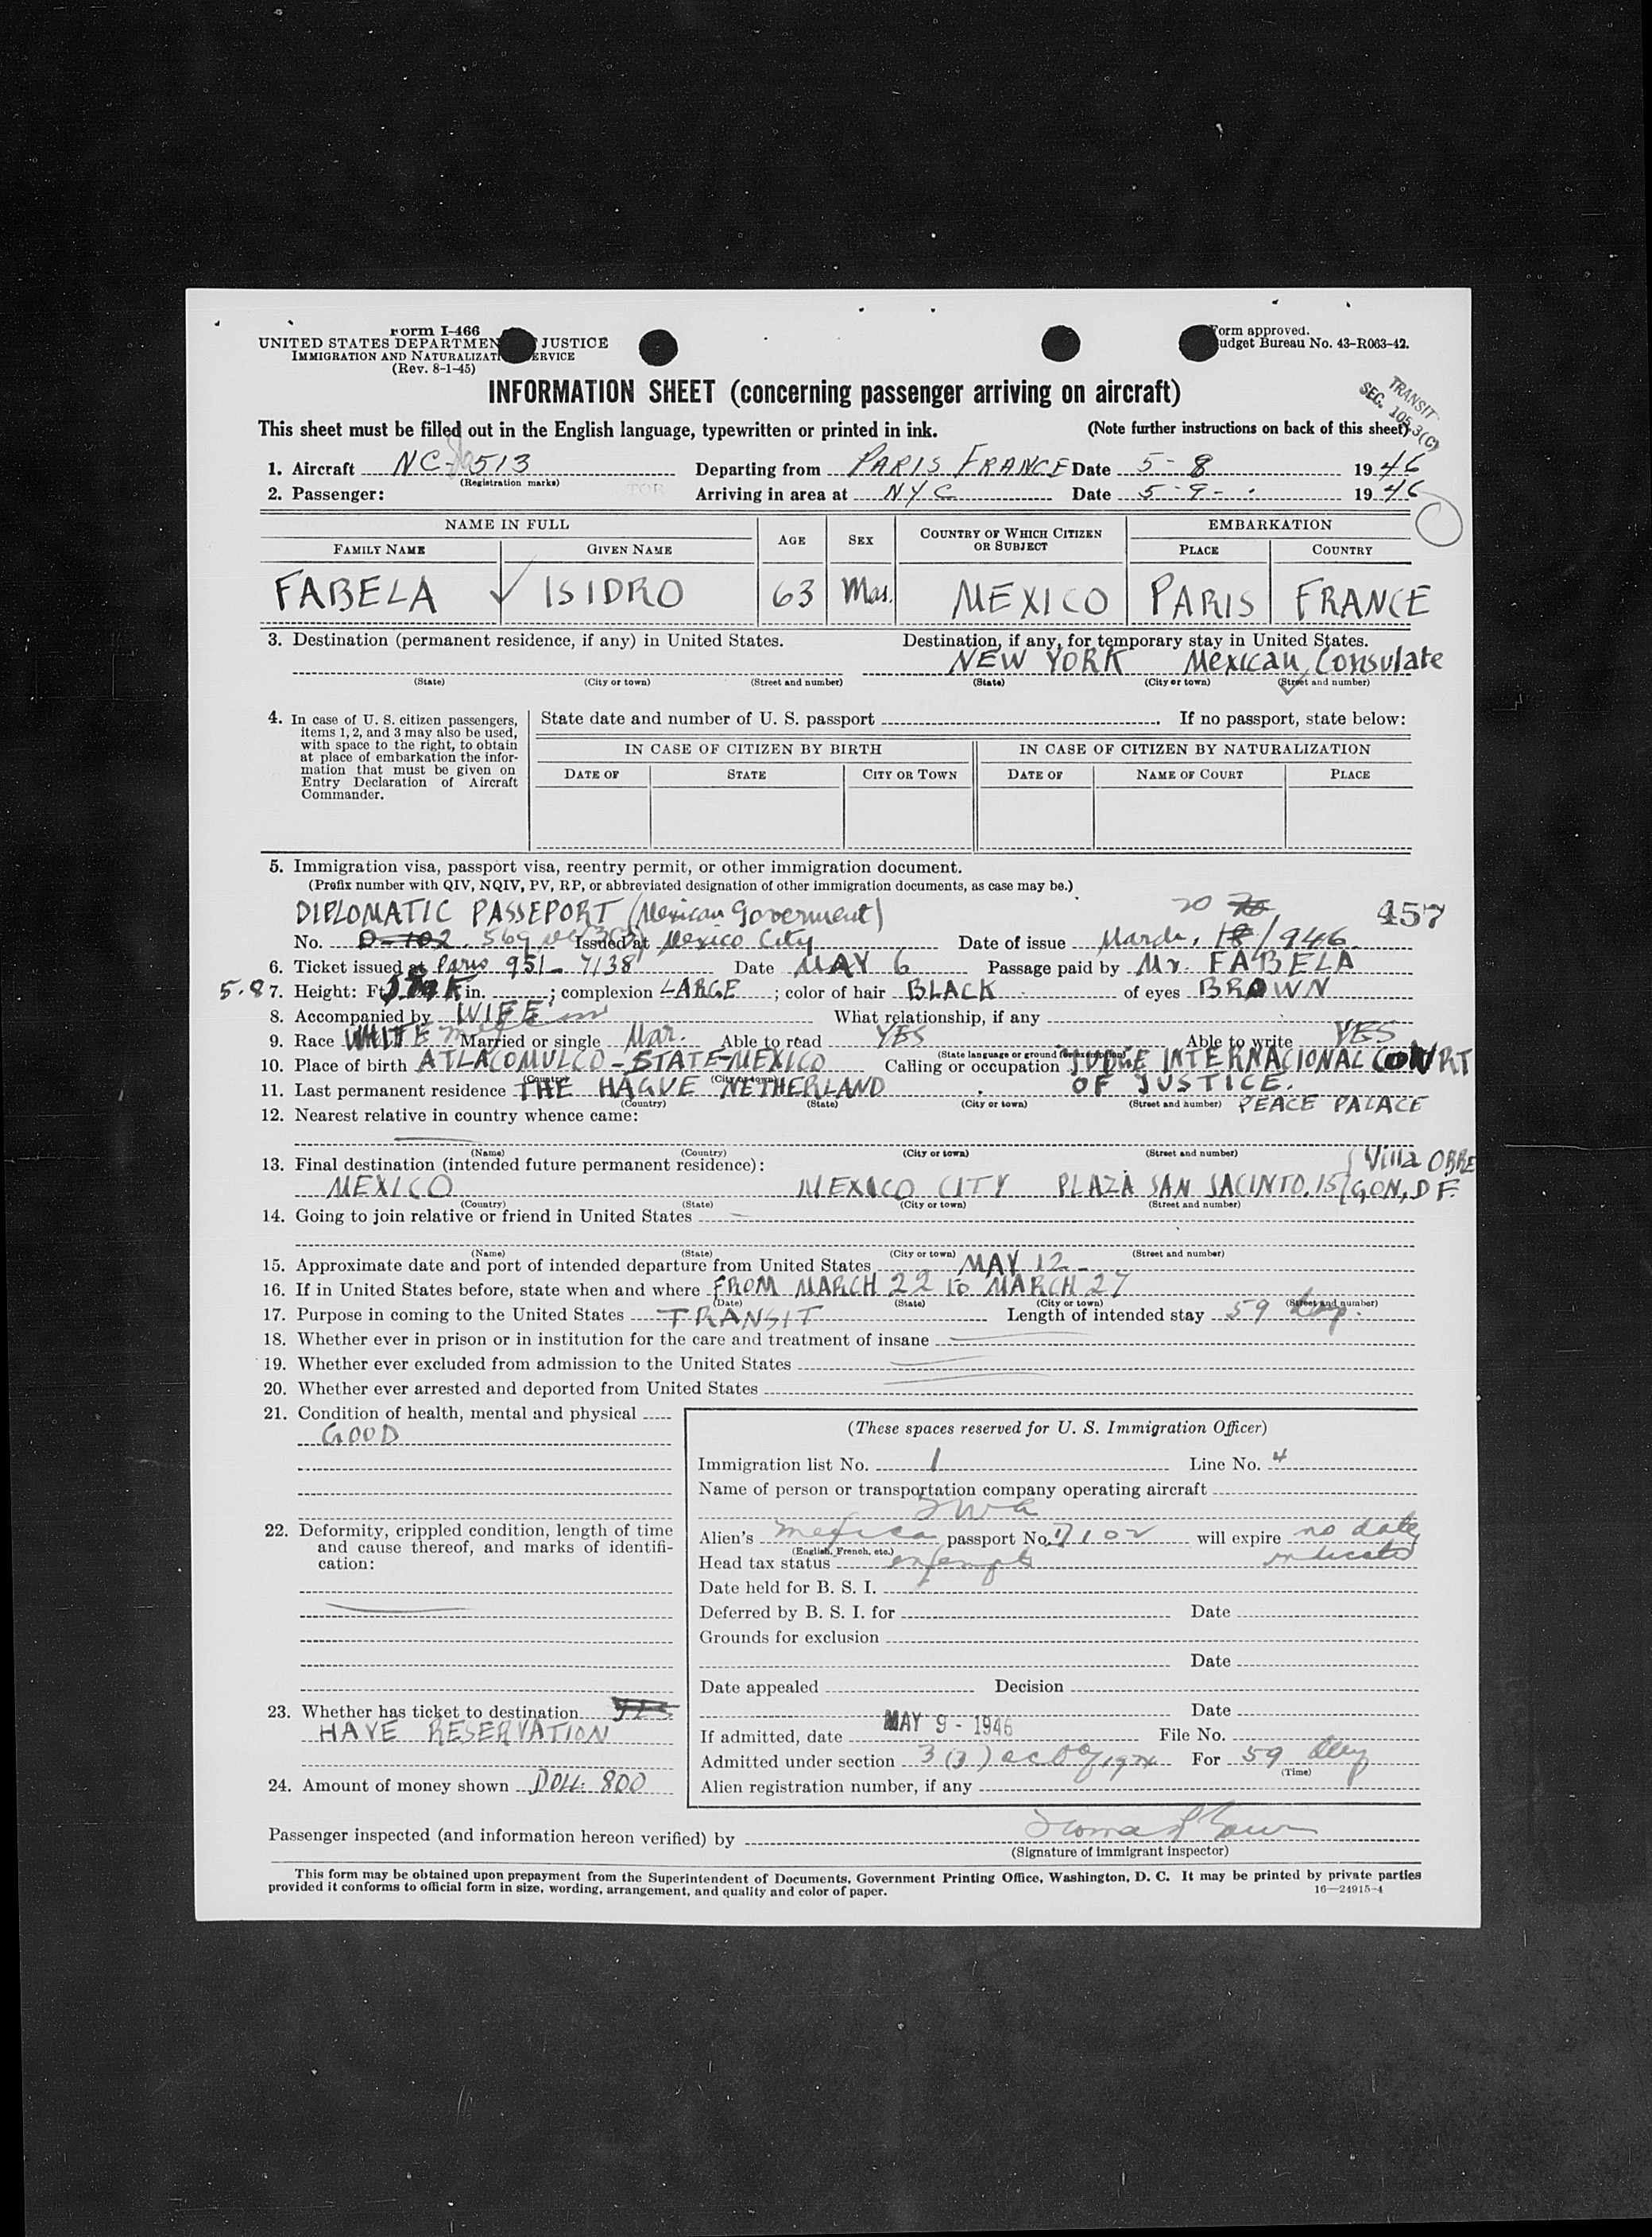 Form I-466
UNITED STATES DEPARTMENT JUSTICE
IMMIGRATION AND NATURALIZATI ERVICE
(Rev. 8-1-45)
Form approved.
udget Bureau No. 43-R063-42.
INFORMATION SHEET (concerning passenger arriving on aircraft)
TRANSIT
SEC. 105.3(C)
This sheet must be filled out in the English language, typewritten or printed in ink. (Note further instructions on back of this sheet)
1. Aircraft NC 513 Departing from PARIS FRANCE Date 5-8 1946
(Registration marks)
2. Passenger: Arriving in area at NYC Date 5-9- 1946
NAME IN FULL AGE SEX COUNTRY OF WHICH CITIZEN OR SUBJECT EMBARKATION
FAMILY NAME GIVEN NAME PLACE COUNTRY
FABELA ISIDRO 63 Mas. MEXICO PARIS FRANCE
3. Destination (permanent residence, if any) in United States. Destination, if any, for temporary stay in United States.
NEW YORK Mexican Consulate
(State) (City or town) (Street and number) (State) (City or town) (Street and number)
4. In case of U. S. citizen passengers, items 1, 2, and 3 may also be used, with space to the right, to obtain at place of embarkation the information that must be given on Entry Declaration of Aircraft Commander.
State date and number of U. S. passport . If no passport, state below:
IN CASE OF CITIZEN BY BIRTH IN CASE OF CITIZEN BY NATURALIZATION
DATE OF STATE CITY OR TOWN DATE OF NAME OF COURT PLACE
5. Immigration visa, passport visa, reentry permit, or other immigration document.
(Prefix number with QIV, NQIV, PV, RP, or abbreviated designation of other immigration documents, as case may be.)
DIPLOMATIC PASSEPORT (Mexican Goverment) 20 457
No. D-102. 569 Issued at Mexico City Date of issue March, 18/946
6. Ticket issued at Paris 951-7138 Date MAY 6 Passage paid by Mr. FABELA
5.8 7. Height: Ft. in. ; complexion LARGE ; color of hair BLACK of eyes BROWN
8. Accompanied by WIFE What relationship, if any
9. Race WHITE Married or single Mar. Able to read YES Able to write YES
(State language or ground for exemption)
10. Place of birth ATLACOMULCO-STATE-MEXICO Calling or occupation JUDGE INTERNACIONAL COURT
(Country) (City or town)
11. Last permanent residence THE HAGUE NETHERLAND OF JUSTICE.
(Country) (State) (City or town) (Street and number) PEACE PALACE
12. Nearest relative in country whence came:
(Name) (Country) (City or town) (Street and number)
13. Final destination (intended future permanent residence): Villa OBRE
MEXICO MEXICO CITY PLAZA SAN JACINTO. 15 GON, D F.
(Country) (State) (City or town) (Street and number)
14. Going to join relative or friend in United States
(Name) (State) (City or town) (Street and number)
15. Approximate date and port of intended departure from United States MAY 12-
16. If in United States before, state when and where FROM MARCH 22 to MARCH 27
(Date) (State) (City or town) (Street and number)
17. Purpose in coming to the United States TRANSIT Length of intended stay 59 days.
18. Whether ever in prison or in institution for the care and treatment of insane
19. Whether ever excluded from admission to the United States
20. Whether ever arrested and deported from United States
21. Condition of health, mental and physical
GOOD
22. Deformity, crippled condition, length of time and cause thereof, and marks of identification:
23. Whether has ticket to destination
HAVE RESERVATION
24. Amount of money shown DOLL: 800
(These spaces reserved for U. S. Immigration Officer)
Immigration list No. 1 Line No. 4
Name of person or transportation company operating aircraft
TWA
Alien's Mexican passport No. D102 will expire no date
(English, French, etc.) indicated
Head tax status exempt
Date held for B. S. I.
Deferred by B. S. I. for Date
Grounds for exclusion
Date
Date appealed Decision
Date
If admitted, date MAY 9 - 1946 File No.
Admitted under section 3(3) act of 1924 For 59 days
(Time)
Alien registration number, if any
Passenger inspected (and information hereon verified) by
(Signature of immigrant inspector)
This form may be obtained upon prepayment from the Superintendent of Documents, Government Printing Office, Washington, D. C. It may be printed by private parties
provided it conforms to official form in size, wording, arrangement, and quality and color of paper. 16—24915-4